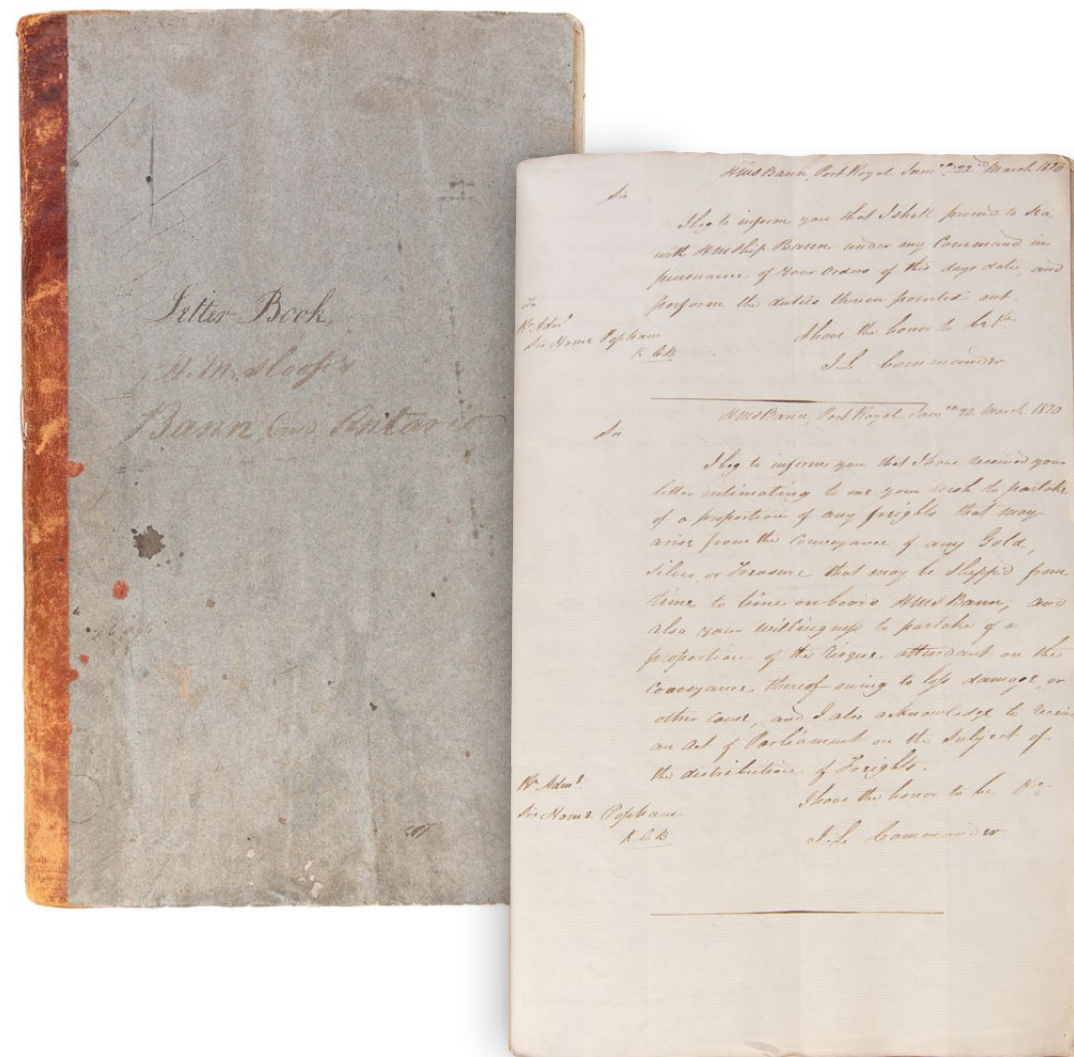 Letter Book
H.M. Sloops
Bann and Ontario
HMS Bann, Port Royal Jamca 22nd March 1820
Sir
I beg to inform you that I shall proceed to sea
with HM Ship Bann under my Command in
pursuance of Your Orders of this days date, and
perform the duties therein pointed out.
I have the honor to be &c
J.L. Commander
To
Rr Adml
Sir Home Popham
K.C.B.
HMS Bann, Port Royal Jamca 22 March 1820
Sir
I beg to inform you that I have received your
letter intimating to me your wish to partake
of a proportion of any freights that may
arise from the Conveyance of any Gold,
Silver or Treasure that may be shipp'd from
time to time on board HMS Bann; and
also your willingness to partake of a
proportion of the risque attendant on the
Conveyance thereof owing to loss damage, or
other cause, and I also acknowledge to receive
an Act of Parliament on the subject of
the distribution of Freights.
I have the honor to be &c
J.L. Commander
Rr Adml
Sir Home Popham
K.C.B